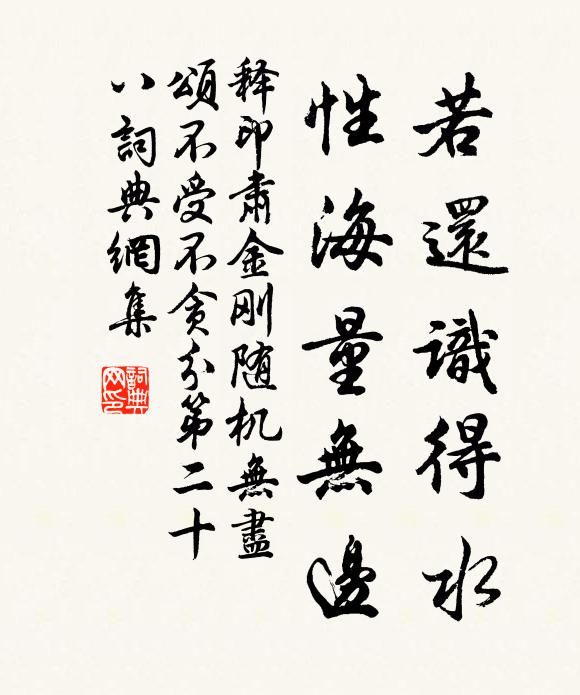 若還識得水
性海量無邊
释印肃金刚随机無盡
頌不受不貪分第二十
八詞典網集
詞典
网印